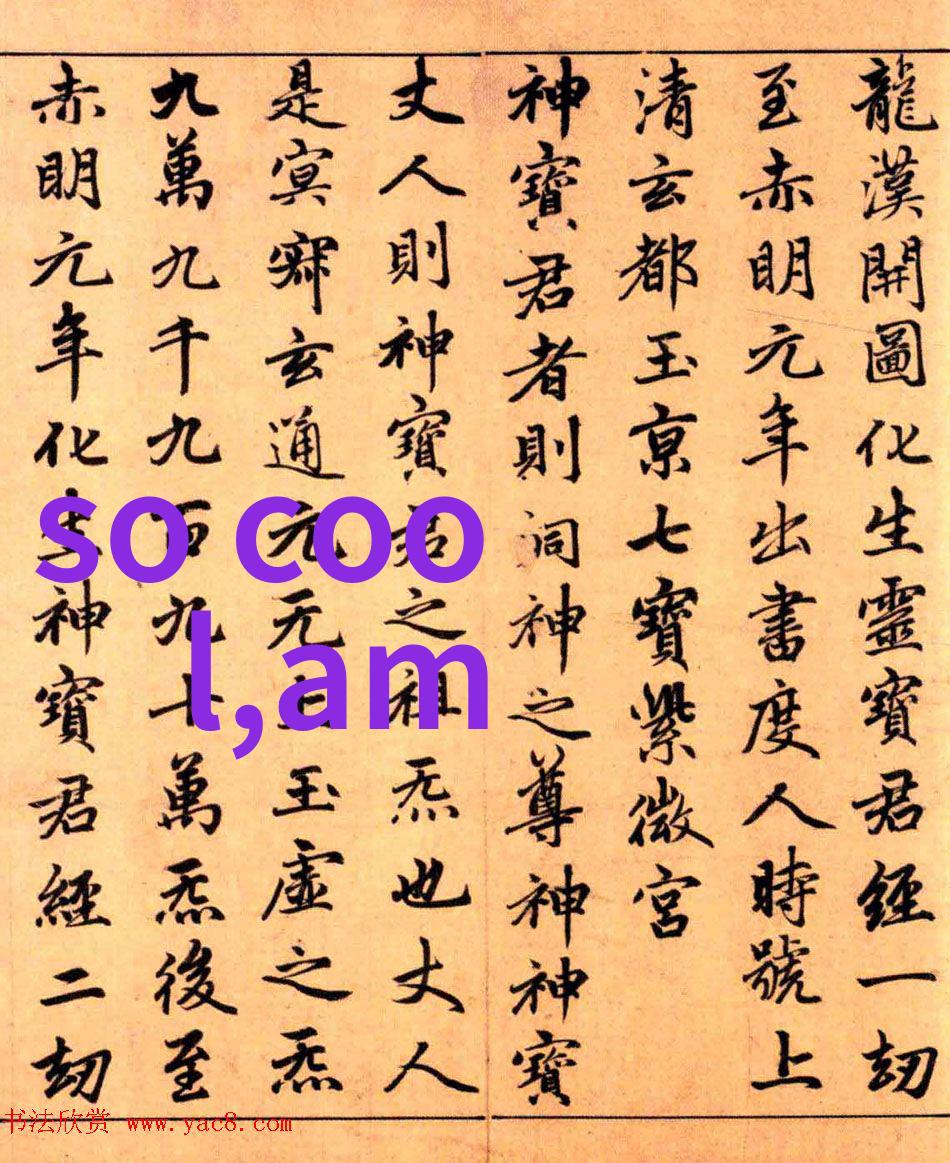 龍漢開圖化生靈寶君經一劫
至赤明元年出書度人時號上
清玄都玉京七寶紫微宮
神寶君者則詞神之尊神神寶
丈人則神寶君之祖炁也丈人
是冥寂玄通元无上玉虛之炁
九萬九千九百九十萬炁後至
赤明元年化生神寶君經二劫
so coo
l,am
书法欣赏 www.yac8.com